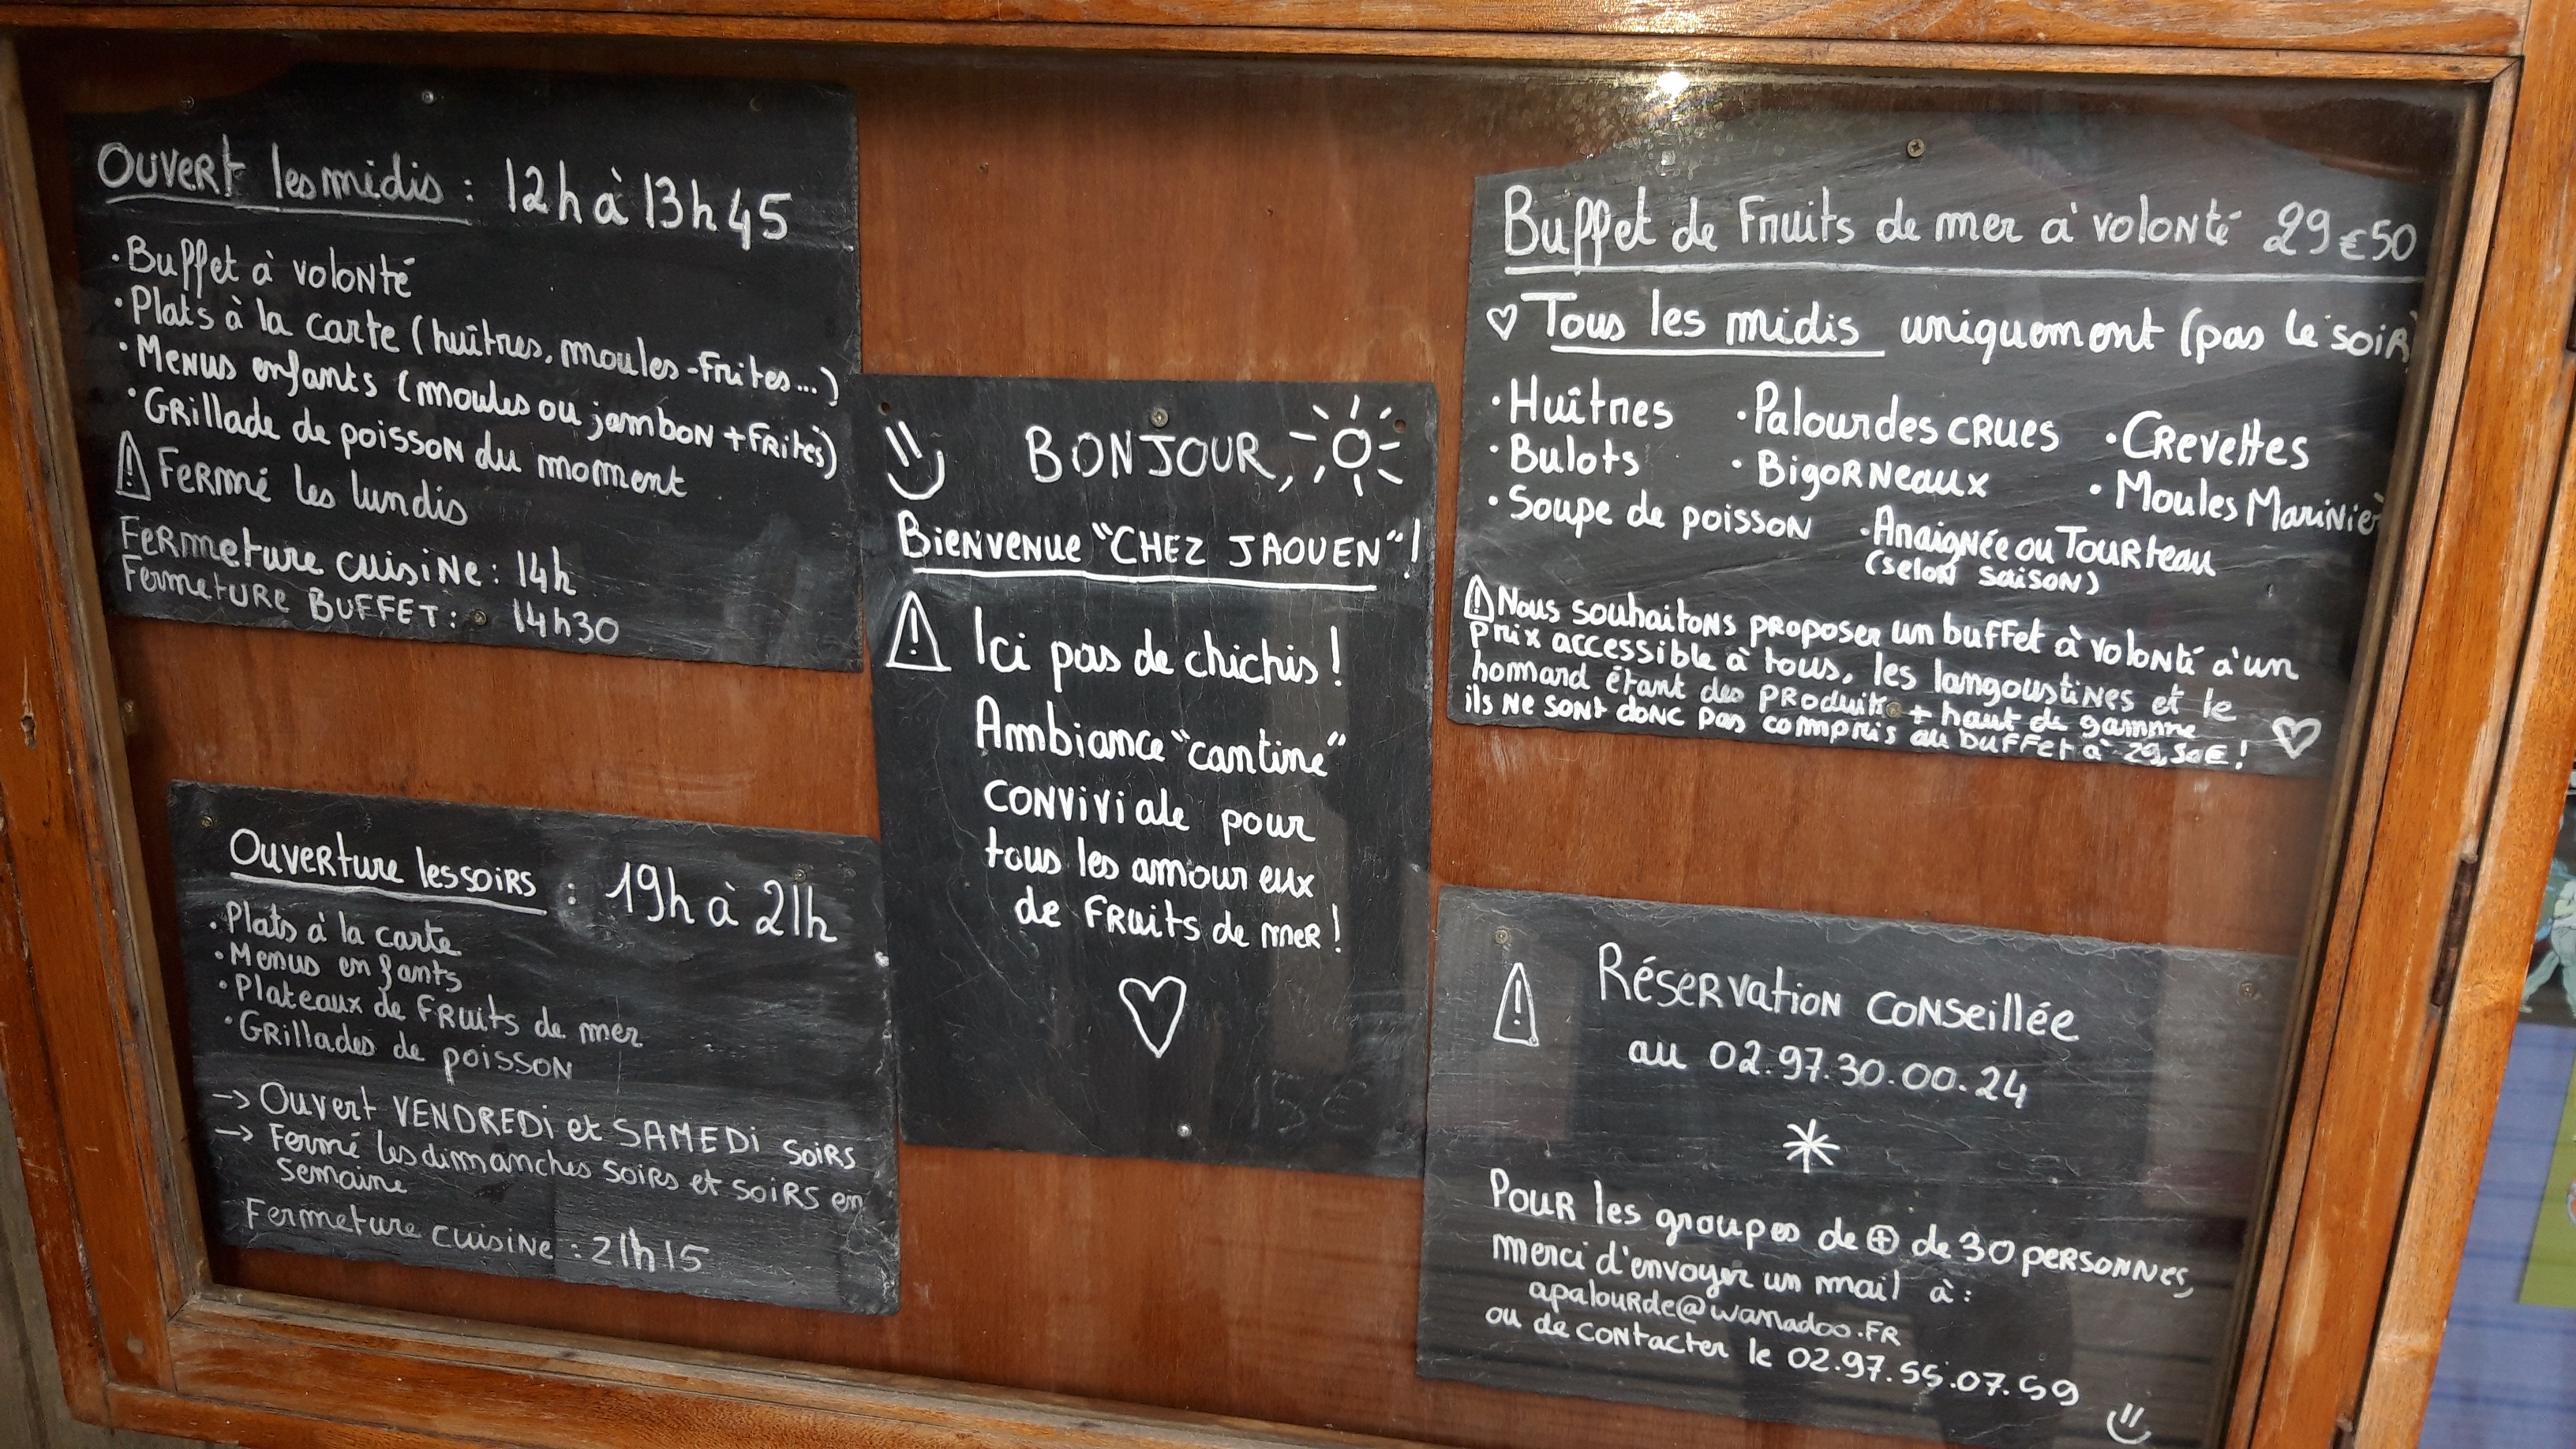 Ouvert les midis : 12h à 13h45
• Buffet à volonté
• Plats à la carte (huîtres, moules-frites...)
• Menus enfants (moules ou jambon + frites)
• Grillade de poisson du moment
⚠ Fermé les lundis
Fermeture cuisine : 14h
Fermeture BUFFET : 14h30
Ouverture les soirs : 19h à 21h
• Plats à la carte
• Menus enfants
• Plateaux de fruits de mer
• Grillades de poisson
→ Ouvert VENDREDI et SAMEDI soirs
→ Fermé les dimanches soirs et soirs en
semaine
Fermeture cuisine : 21h15
BONJOUR,
Bienvenue "CHEZ JAOUEN" !
⚠ Ici pas de chichis !
Ambiance "cantine"
conviviale pour
tous les amoureux
de fruits de mer !
15€
Buffet de fruits de mer à volonté 29€50
♡ Tous les midis uniquement (pas le soir)
• Huîtres • Palourdes crues • Crevettes
• Bulots • Bigorneaux • Moules Marinièr
• Soupe de poisson • Araignée ou Tourteau
(selon saison)
⚠ Nous souhaitons proposer un buffet à volonté à un
prix accessible à tous, les langoustines et le
hommard étant des produits + haut de gamme
ils ne sont donc pas compris au buffet à 29,50€ ! ♡
⚠ Réservation conseillée
au 02.97.30.00.24
*
Pour les groupes de ⊕ de 30 personnes,
merci d'envoyer un mail à :
apalourde@wanadoo.fr
ou de contacter le 02.97.55.07.59